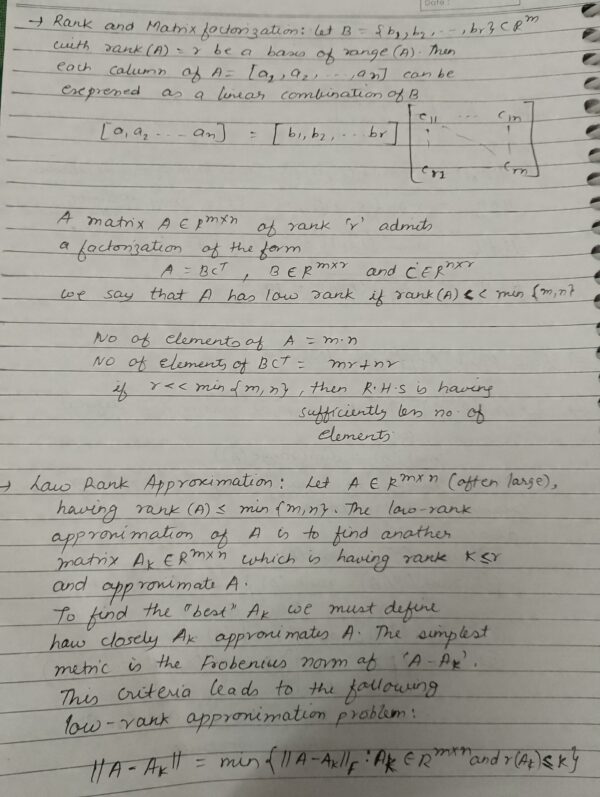 Date :
→ Rank and Matrix factorization: Let B = {b1, b2, --, br} C R^m
with rank(A) = r be a bases of range (A). Then
each column of A = [a1, a2, ..., an] can be
expressed as a linear combination of B
[a1 a2 ... an] = [b1, b2, ... br] [c11 ... c1n
cr1 crn]
A matrix A ∈ R^m×n of rank 'r' admits
a factorization of the form
A = BC^T , B ∈ R^m×r and C ∈ R^n×r
we say that A has low rank if rank(A) << min {m,n}
No of elements of A = m·n
NO of elements of BC^T = mr+nr
if r << min {m, n}, then R.H.S is having
sufficiently less no. of
elements
→ Low Rank Approximation: Let A ∈ R^m×n (often large),
having rank (A) ≤ min {m,n}. The low-rank
approximation of A is to find another
matrix Ak ∈ R^m×n which is having rank K ≤ r
and approximate A.
To find the "best" Ak we must define
how closely Ak approximates A. The simplest
metric is the Frobenius norm of 'A-Ak'.
This criteria leads to the following
low-rank approximation problem:
||A - Ak|| = min {||A-Ak||F : Ak ∈ R^m×n and r(Ak) ≤ K}